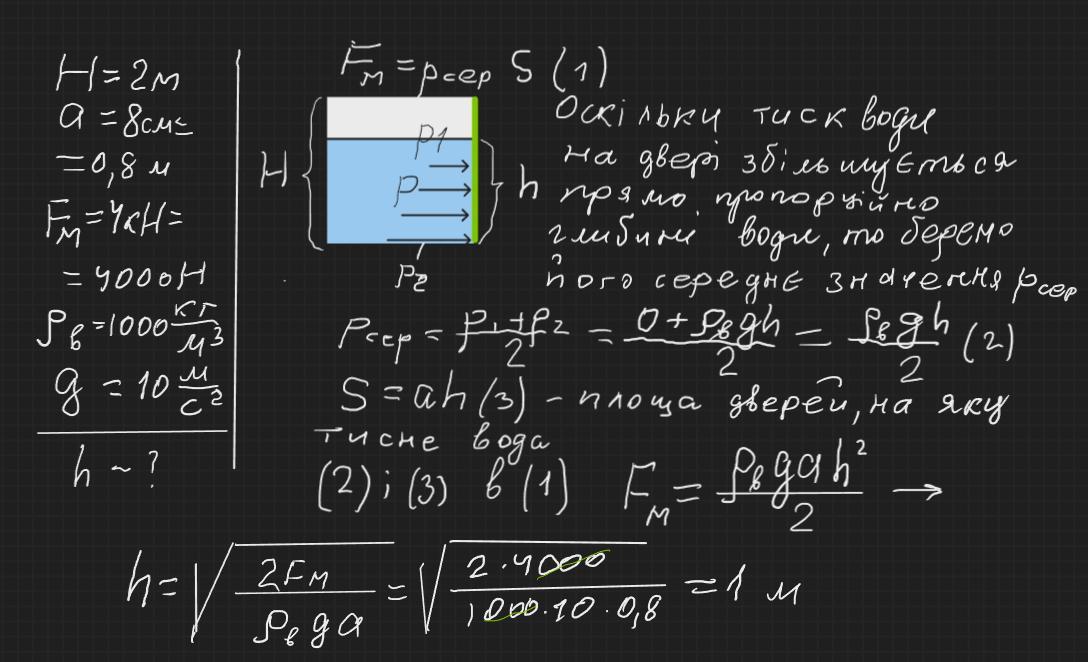 H = 2м
a = 8см=
= 0,8 м
Fм = 4кН=
= 4000Н
ρв = 1000 кг/м³
g = 10 м/с²
h - ?
Fм = pсер S (1)
H
p1
p
p2
h
Оскільки тиск води
на двері збільшується
прямо пропорційно
глибині води, то беремо
його середнє значення pсер
Pсер = p₁+p₂/2 = 0+ρвgh/2 = ρвgh/2 (2)
S = ah (3) - площа дверей, на яку
тисне вода
(2) і (3) в (1) Fм = ρвgah²/2 →
h = √2Fм/ρвga = √2·4000/1000·10·0,8 = 1 м